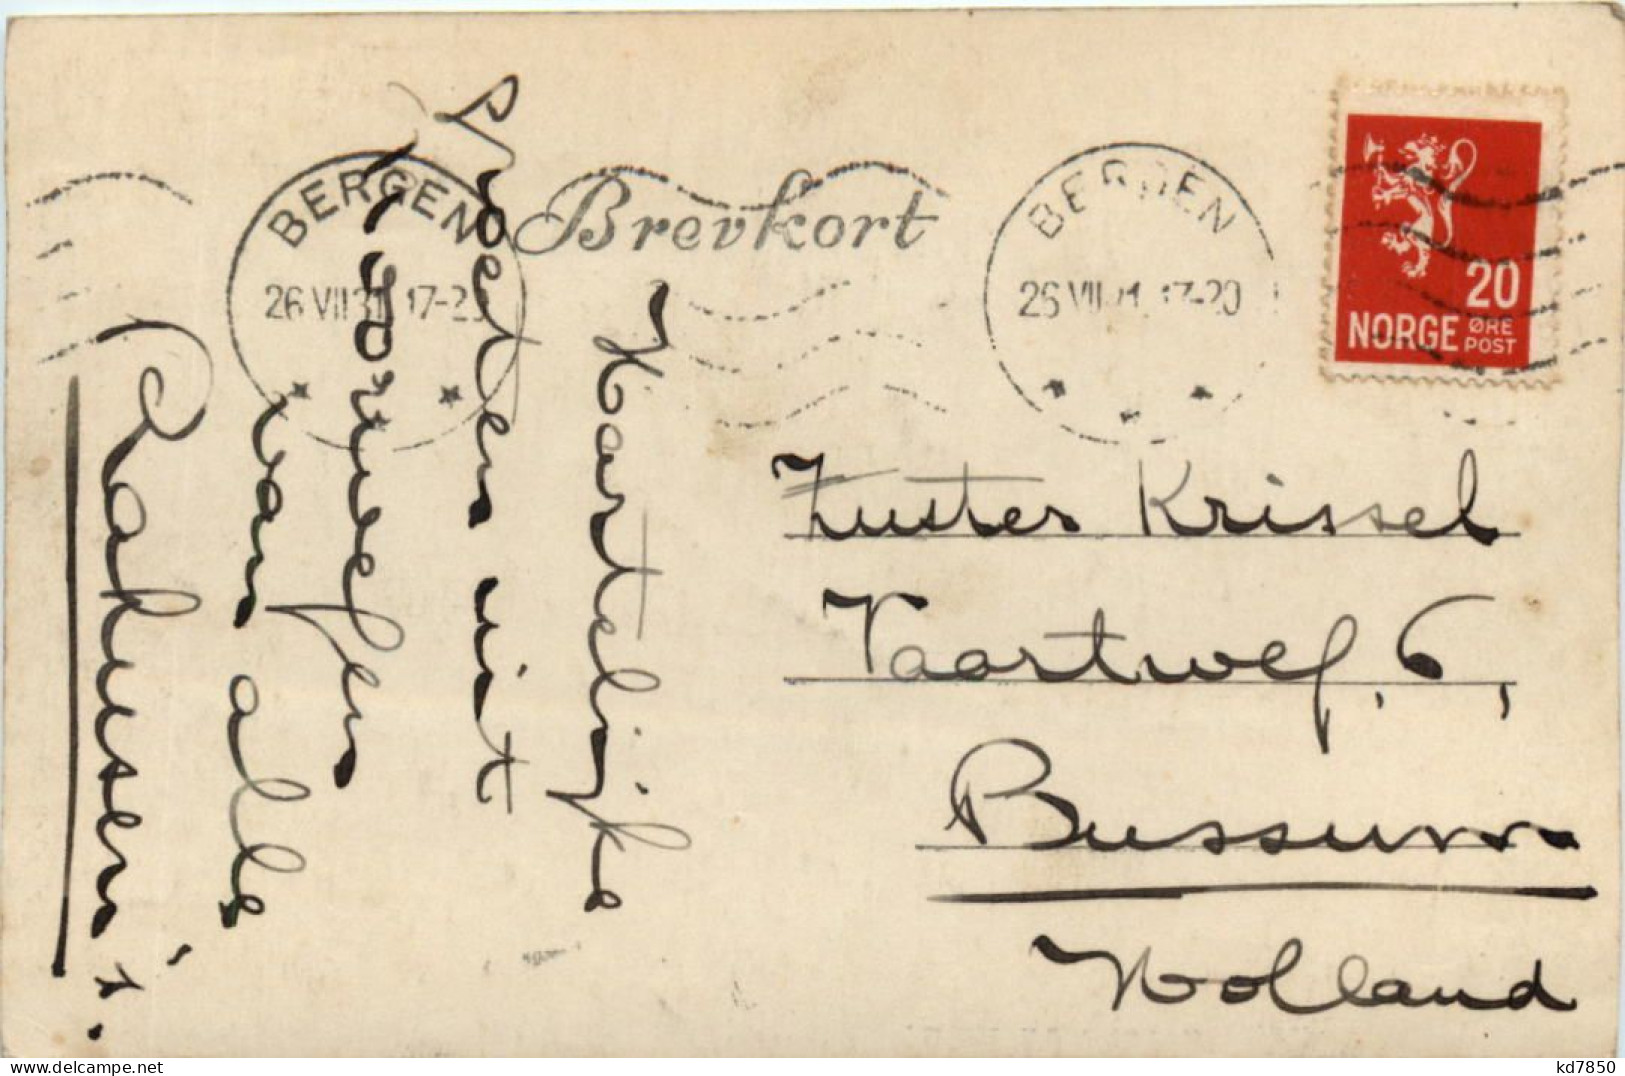 Brevkort
BERGEN
26 VII 31 17-20
BERGEN
26 VII 17-20
20
NORGE ØRE
POST
Hartelijke
groeten uit
Noorwegen
van alle
Rahusen's.
Zuster Krissel
Vaartweg, 6,
Bussum
Holland
kd7850